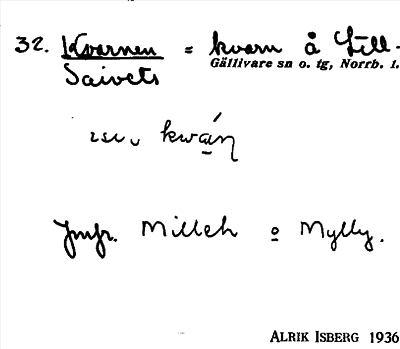 32. Kvarnen = kvarn å Lill-
Gällivare sn o. tg, Norrb. l.
Saivets
kwán
Jmfr. Milleh o Mylly.
ALRIK ISBERG 1936